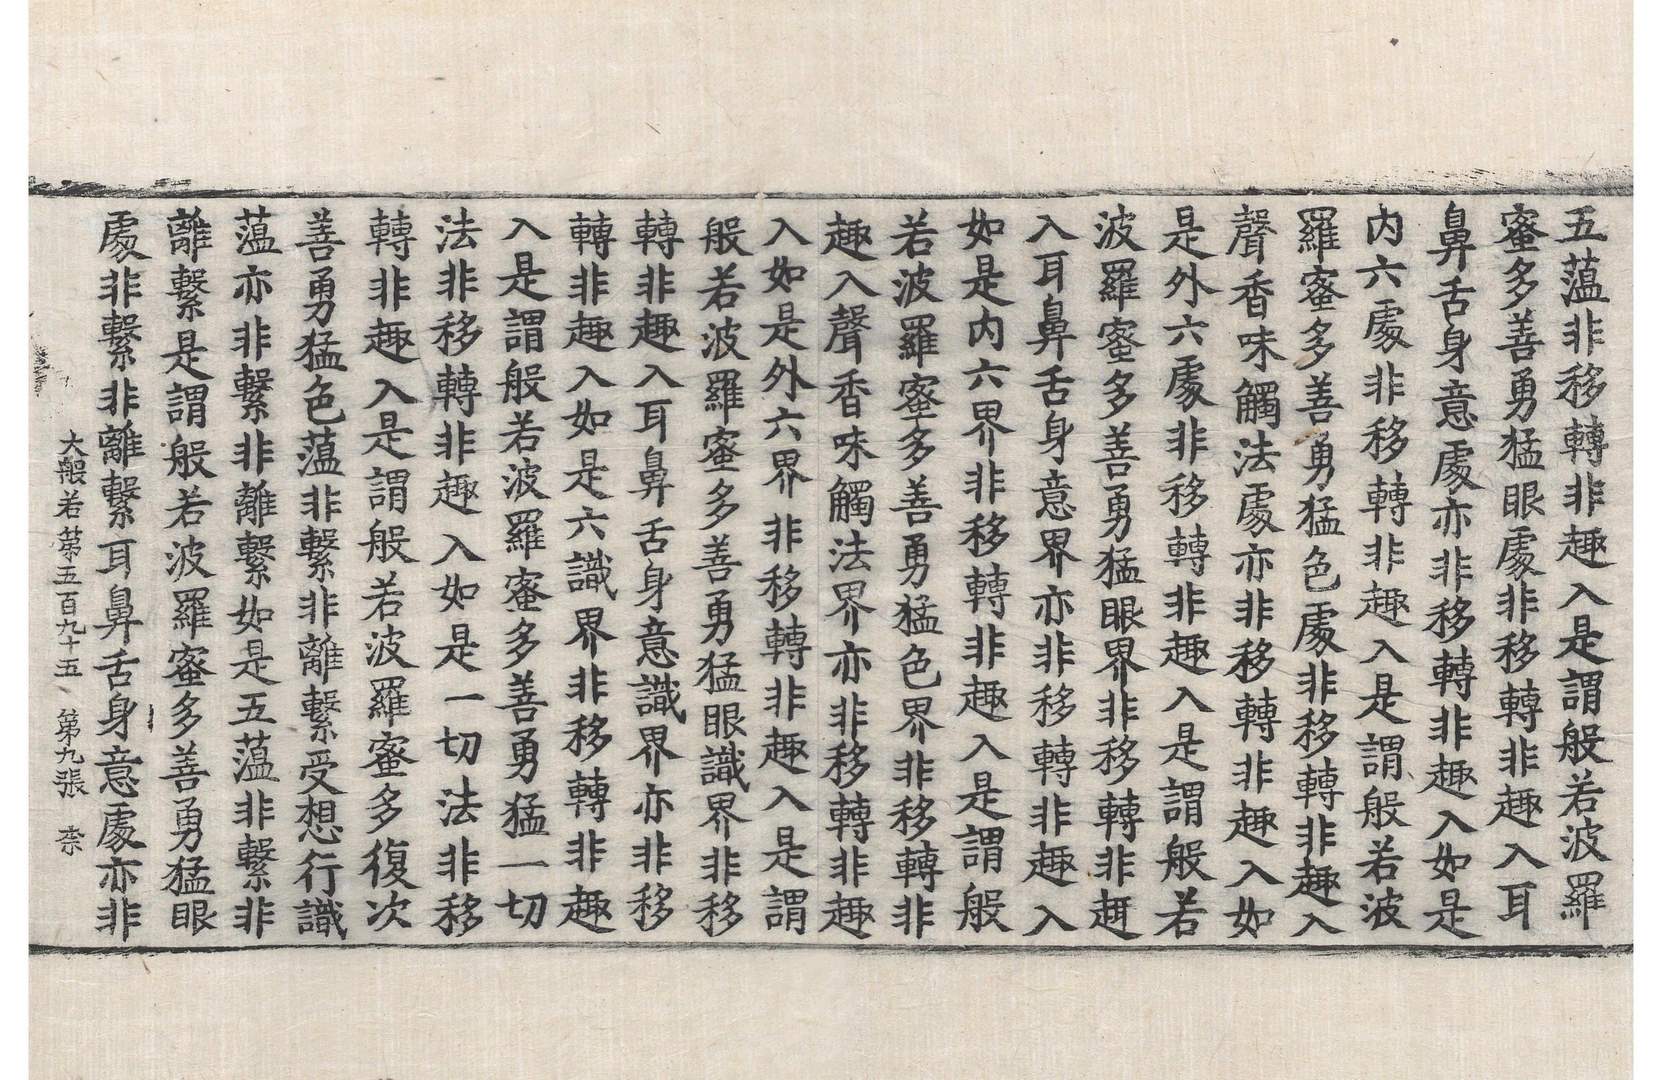 五薀非移轉非趣入是謂般若波羅
蜜多善勇猛眼處非移轉非趣入耳
鼻舌身意處亦非移轉非趣入如是
内六處非移轉非趣入是謂般若波
羅蜜多善勇猛色處非移轉非趣入
聲香味觸法處亦非移轉非趣入如
是外六處非移轉非趣入是謂般若
波羅蜜多善勇猛眼界非移轉非趣
入耳鼻舌身意界亦非移轉非趣入
如是内六界非移轉非趣入是謂般
若波羅蜜多善勇猛色界非移轉非
趣入聲香味觸法界亦非移轉非趣
入如是外六界非移轉非趣入是謂
般若波羅蜜多善勇猛眼識界非移
轉非趣入耳鼻舌身意識界亦非移
轉非趣入如是六識界非移轉非趣
入是謂般若波羅蜜多善勇猛一切
法非移轉非趣入如是一切法非移
轉非趣入是謂般若波羅蜜多復次
善勇猛色薀非繫非離繫受想行識
薀亦非繫非離繫如是五薀非繫非
離繫是謂般若波羅蜜多善勇猛眼
處非繫非離繫耳鼻舌身意處亦非
大般若第五百九十五 第九張 柰